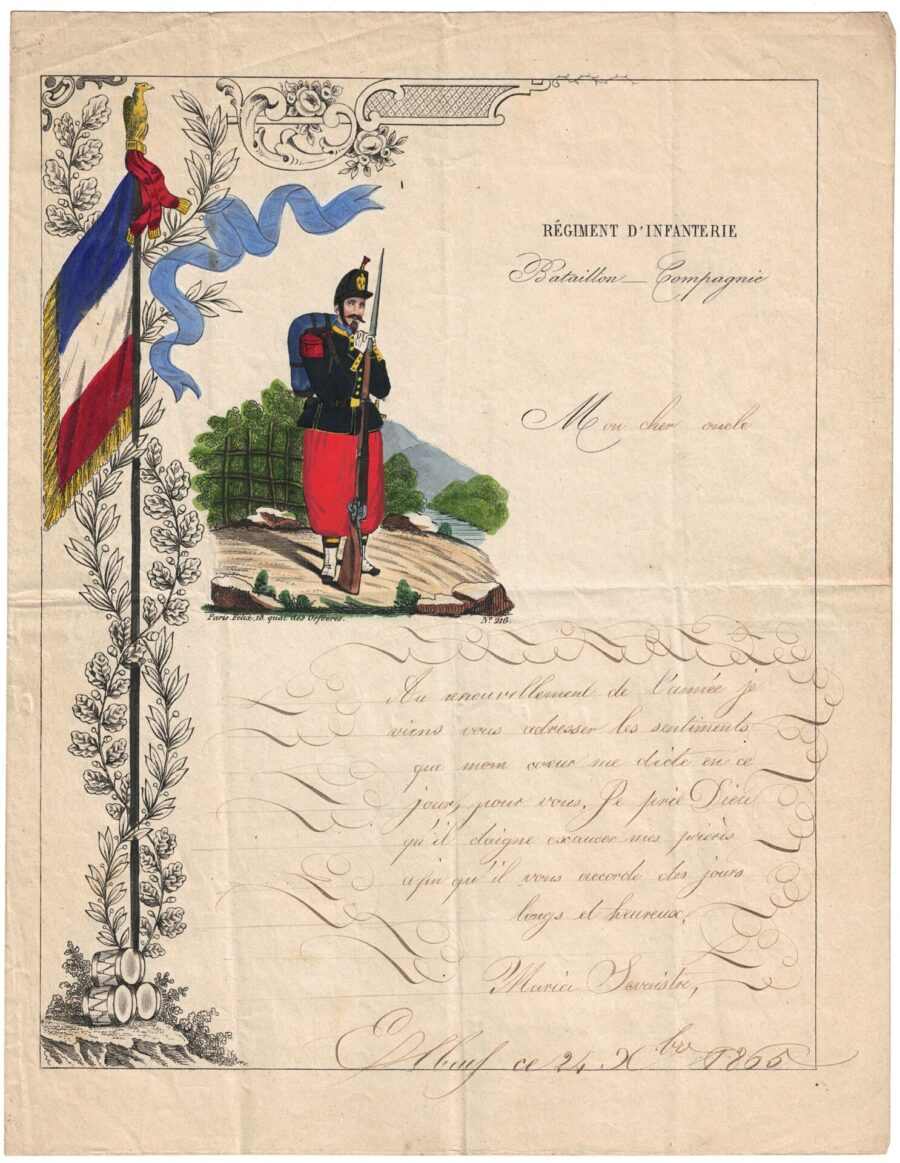 RÉGIMENT D'INFANTERIE
Bataillon _ Compagnie
Mon cher oncle
Paris Felix, 18 quai des Orfevres.
Nº 218.
Au renouvellement de l'année je
viens vous adresser les sentiments
que mom cœur me dicte en ce
jour, pour vous. Je prie Dieu
qu'il daigne exaucer mes prières
afin qu'il vous accorde des jours
longs et heureux.
Maria Sevaistre,
Elbeuf ce 24 Xbre 1865